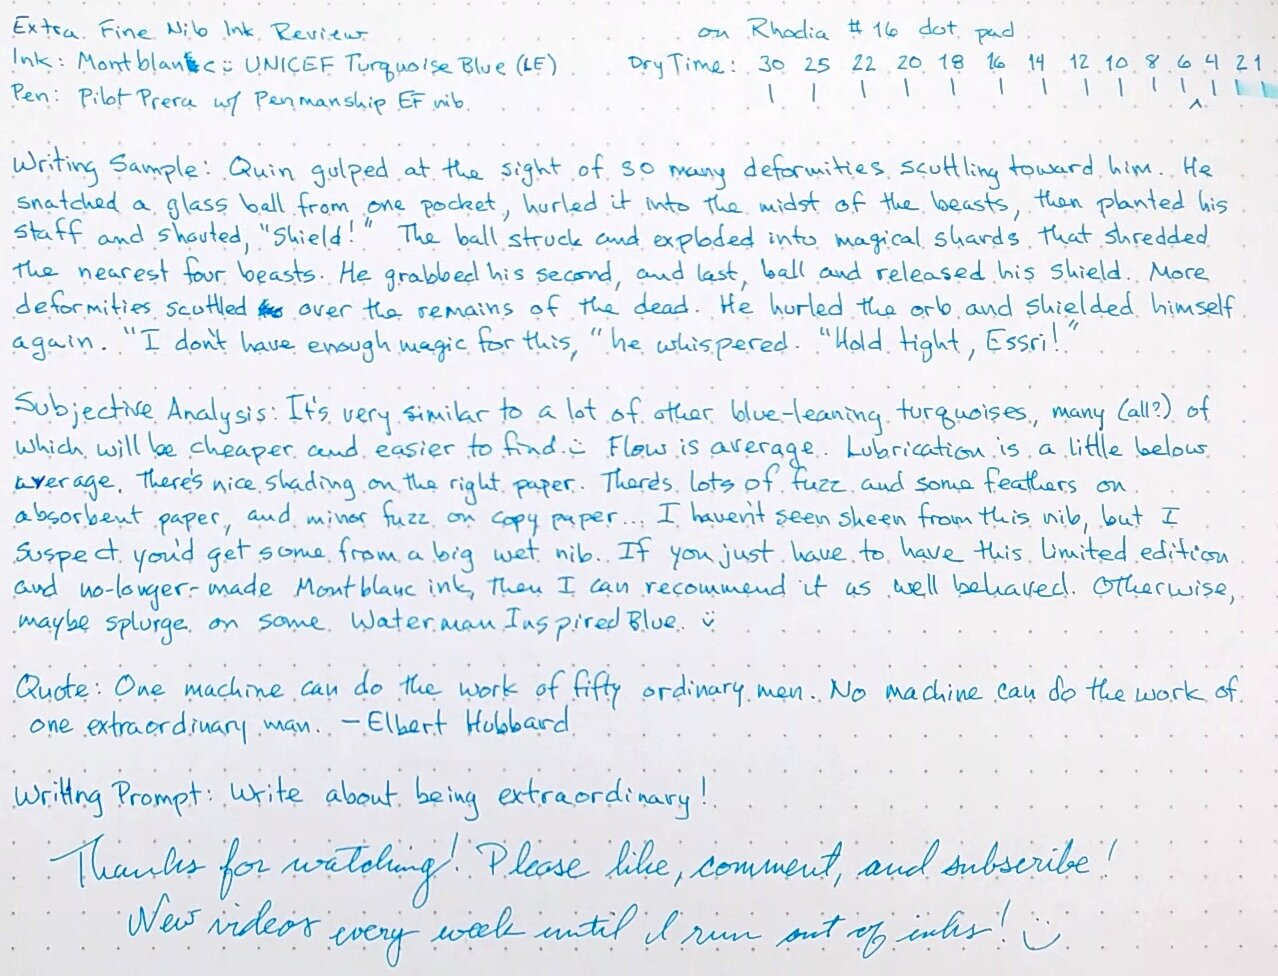 Extra Fine Nib Ink Review on Rhodia #16 dot pad
Ink: Montblanc :) UNICEF Turquoise Blue (LE) Dry Time: 30 25 22 20 18 16 14 12 10 8 6 4 2 1
Pen: Pilot Prera w/ Penmanship EF nib
Writing Sample: Quin gulped at the sight of so many deformities scuttling toward him. He
snatched a glass ball from one pocket, hurled it into the midst of the beasts, then planted his
staff and shouted, "Shield!" The ball struck and exploded into magical shards that shredded
the nearest four beasts. He grabbed his second, and last, ball and released his shield. More
deformities scuttled over the remains of the dead. He hurled the orb and shielded himself
again. "I don't have enough magic for this," he whispered. "Hold tight, Essri!"
Subjective Analysis: It's very similar to a lot of other blue-leaning turquoises, many (all?) of
which will be cheaper and easier to find. :) Flow is average. Lubrication is a little below
average. There's nice shading on the right paper. There's lots of fuzz and some feathers on
absorbent paper, and minor fuzz on copy paper... I haven't seen sheen from this nib, but I
suspect you'd get some from a big wet nib. If you just have to have this limited edition
and no-longer-made Montblanc ink, then I can recommend it as well behaved. Otherwise,
maybe splurge on some Waterman Inspired Blue. :)
Quote: One machine can do the work of fifty ordinary men. No machine can do the work of
one extraordinary man. - Elbert Hubbard
Writing Prompt: Write about being extraordinary!
Thanks for watching! Please like, comment, and subscribe!
New videos every week until I run out of inks! :)